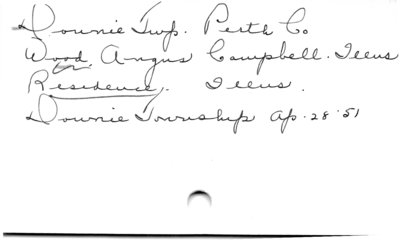 Downie Twp. Perth Co
Wood, Angus Campbell. Illus
Residence, Illus.
Downie Township Ap. 28 '51